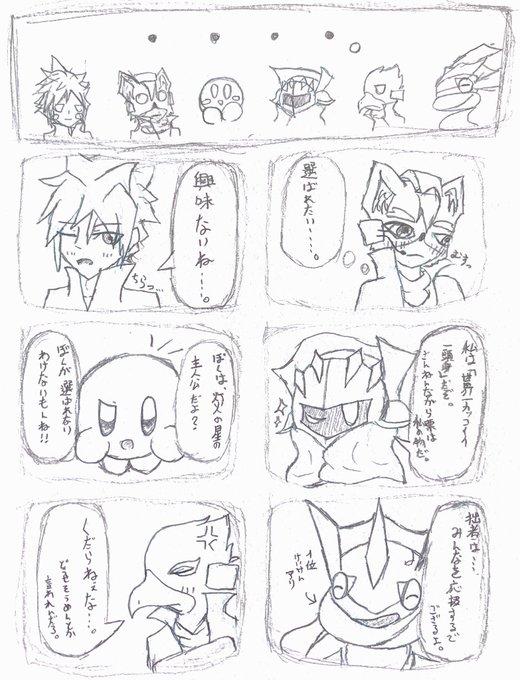 選ばれたい‥‥。
むすっ
興味
ないね‥‥。
ちらっ
私は「世界一カッコイイ
一頭身」だぞ。
ざんねんながら票は
私の物だ。
ぼくは、灯火の星の
主人公だよ？
ぼくが選ばれない
わけないもんね!!
拙者は‥‥
みんなを応援するで
ござるよ。
1位
けいけん
アリ
くだらねえな‥‥。
どうせそうめんとか
言われんだろ。